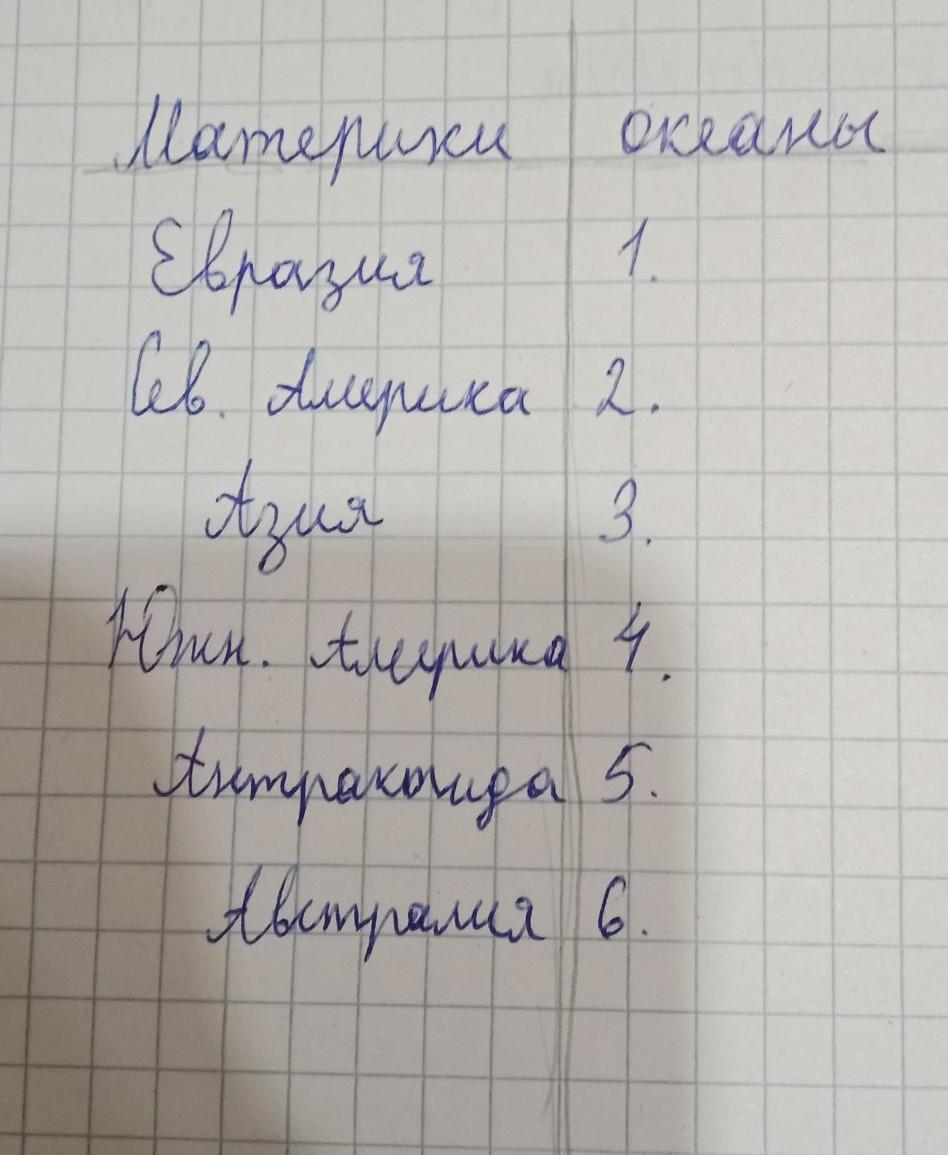 Материки океаны
Евразия 1.
Сев. Америка 2.
Азия 3.
Южн. Америка 4.
Антрактида 5.
Австралия 6.